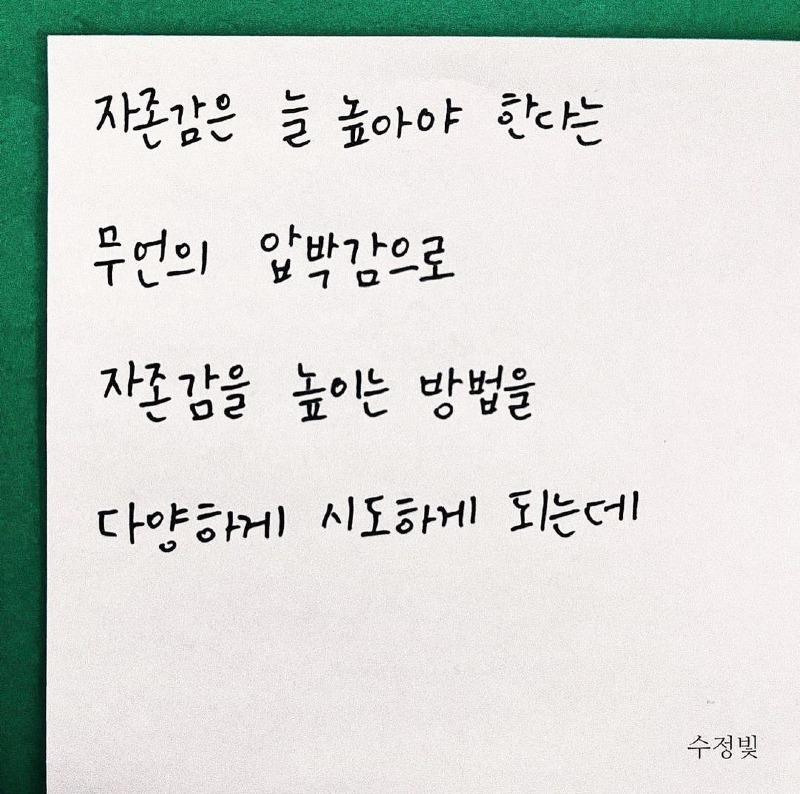 자존감은 늘 높아야 한다는
무언의 압박감으로
자존감을 높이는 방법을
다양하게 시도하게 되는데
수정빛